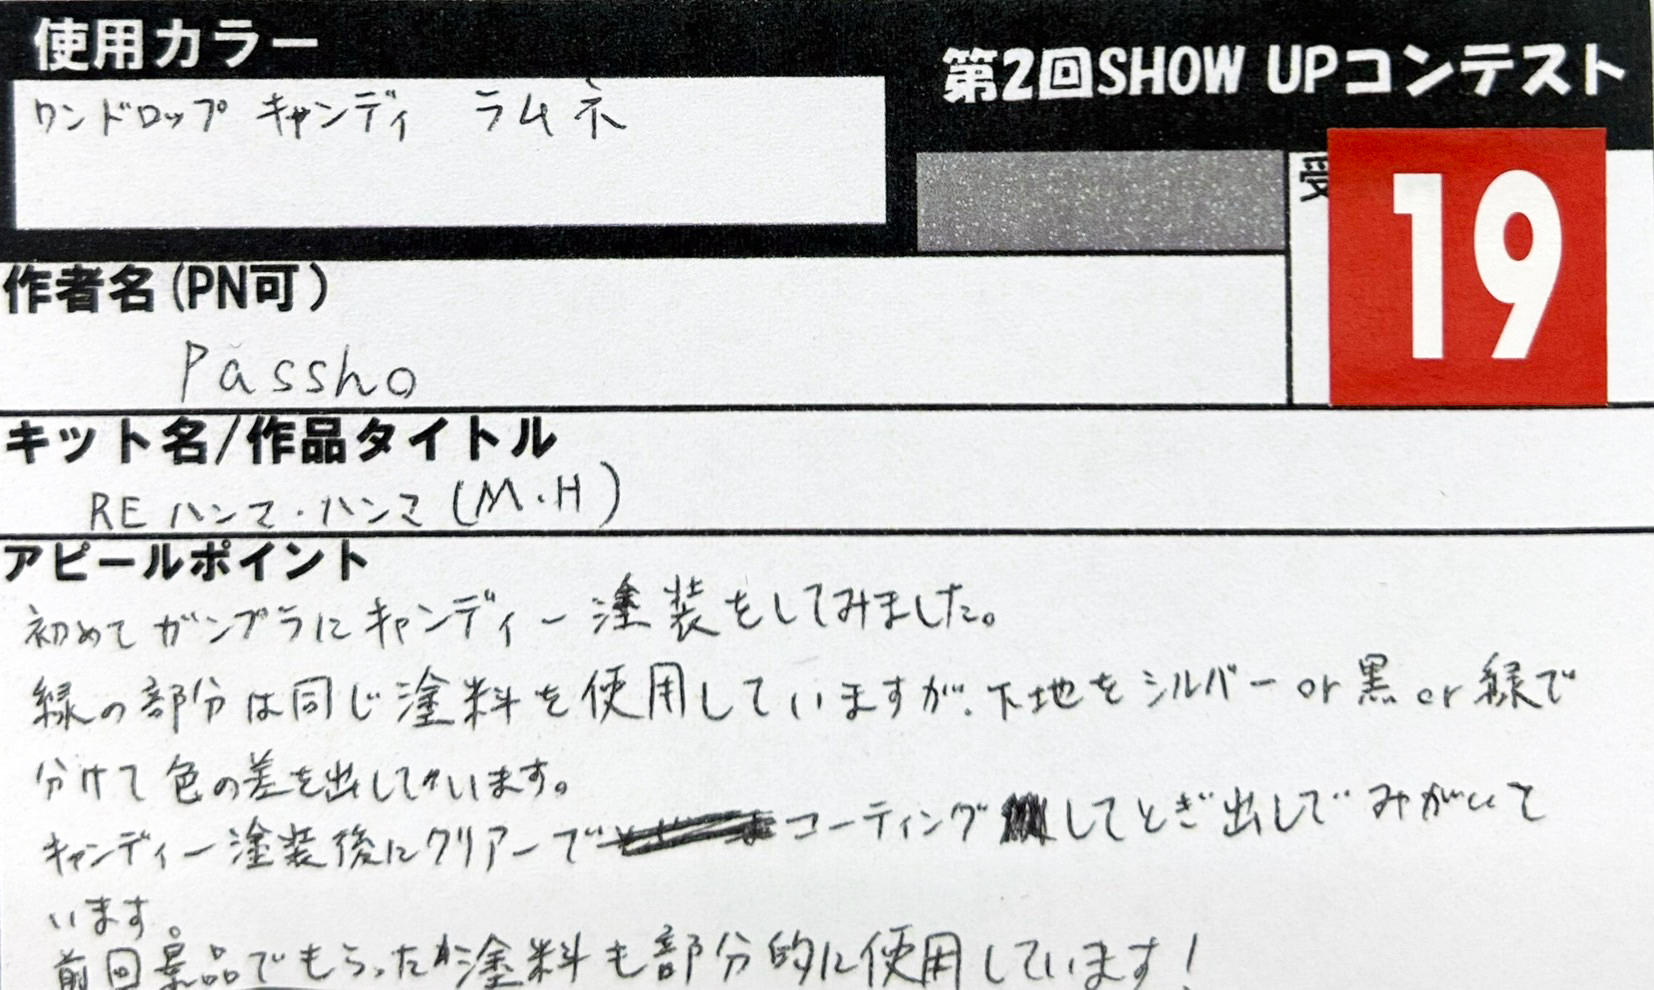 使用カラー
ワンドロップ キャンディ ラムネ
第2回SHOW UPコンテスト
19
作者名(PN可)
Passho
キット名/作品タイトル
RE ハンマ・ハンマ(M・H)
アピールポイント
初めてガンプラにキャンディー塗装をしてみました。
緑の部分は同じ塗料を使用していますが、下地をシルバーor黒or緑で
分けて色の差を出しています。
キャンディー塗装後にクリアーでコーティングしてとぎ出しでみがいて
います。
前回景品でもらった塗料も部分的に使用しています!